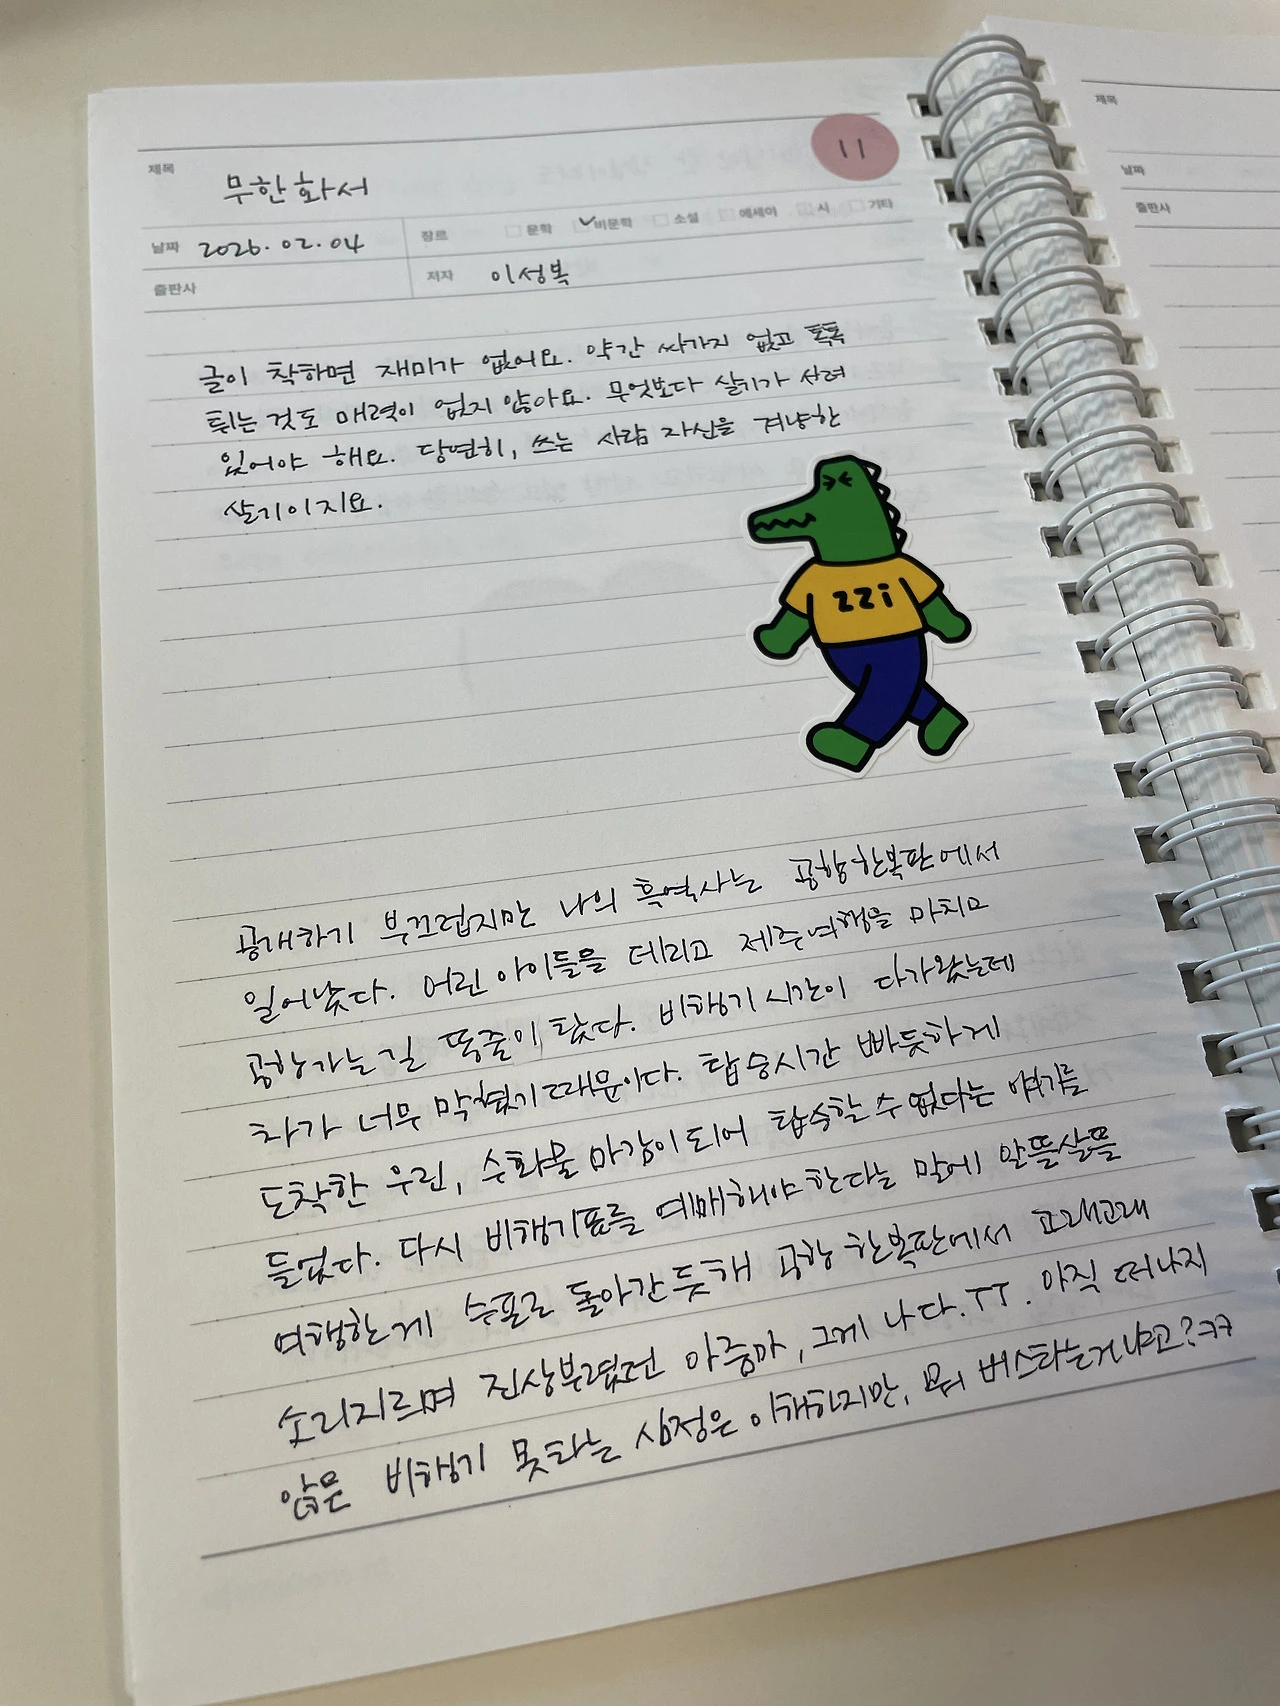 제목 무한화서
11
날짜 2026.02.04 장르 문학 비문학 소설 에세이 시 기타
출판사 저자 이성복
글이 착하면 재미가 없어요. 약간 싸가지 없고 톡톡
튀는 것도 매력이 없지 않아요. 무엇보다 살기가 서려
있어야 해요. 당연히, 쓰는 사람 자신을 겨냥한
살기이지요.
zzi
공개하기 부끄럽지만 나의 흑역사는 공항한복판에서
일어났다. 어린 아이들을 데리고 제주여행을 마치고
공항가는길 똥줄이 탔다. 비행기 시간이 다가왔는데
차가 너무 막혔기때문이다. 탑승시간 빠듯하게
도착한 우린, 수화물 마감이 되어 탑승할 수 없다는 얘기를
들었다. 다시 비행기표를 예매해야 한다는 말에 알뜰살뜰
여행한게 수포로 돌아간 듯해 공항 한복판에서 고래고래
소리지르며 진상부렸던 아줌마, 그게 나다.TT. 아직 떠나지
않은 비행기 못타는 심정은 이해하지만, 뭐 버스타는거냐고?ㅋㅋ
제목
날짜
출판사